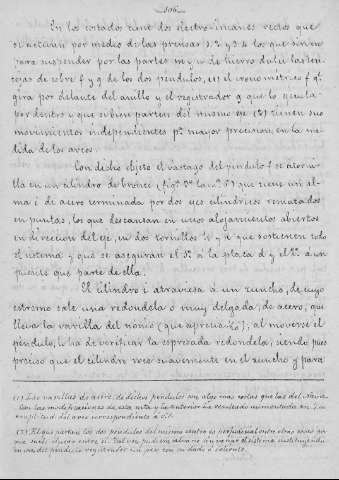 506
En los costados tiene dos electro-imanes rectos que
se activan por medio de las prensas 1.2 y 3.4 los que sirven
para suspender por las partes m y n de hierro dulce las len
tejas de cobre f y g de los dos péndulos, (1) el cronométrico f q.
gira por delante del anillo y el registrador g que lo ejecuta
por dentro y que si bien partes del mismo eje (2) tienen sus
movimientos independientes p.ª mayor precision, en la me
dida de los arcos.
Con dicho objeto el vástago del péndulo f se atorni
lla en un cilindro de bronce (fig.ª 3.ª lam.ª 5.ª) que tiene un al
ma i de acero terminada por dos ejes cilíndricos rematados
en puntas, los que descansan en unos alojamientos abiertos
en direccion del eje, en dos tornillos h y k que sostienen todo
el sistema y que se aseguran el 1.º a la placa d y el 2.º á un
puente que parte de ella.
El cilindro i atraviesa á un zuncho, de cuyo
estremo sale una redondela o muy delgada, de acero, que
lleva la varilla del nonio (que aprecia), al moverse el
péndulo, lo ha de verificar la espresada redondela, siendo pues
preciso que el cilindro roce suavemente en el zuncho y para
(1) Las varillas de acero de dichos péndulos son algo mas cortas que las del Navez.
Con las modificaciones de esta nota y la anterior ha resultado aumentada en
amplitud del arco correspondiente á
(2) El que partan los dos péndulos del mismo centro es perjudicial entre otras cosas por
que suele el juego entre si. Tal vez pudiera salvarse